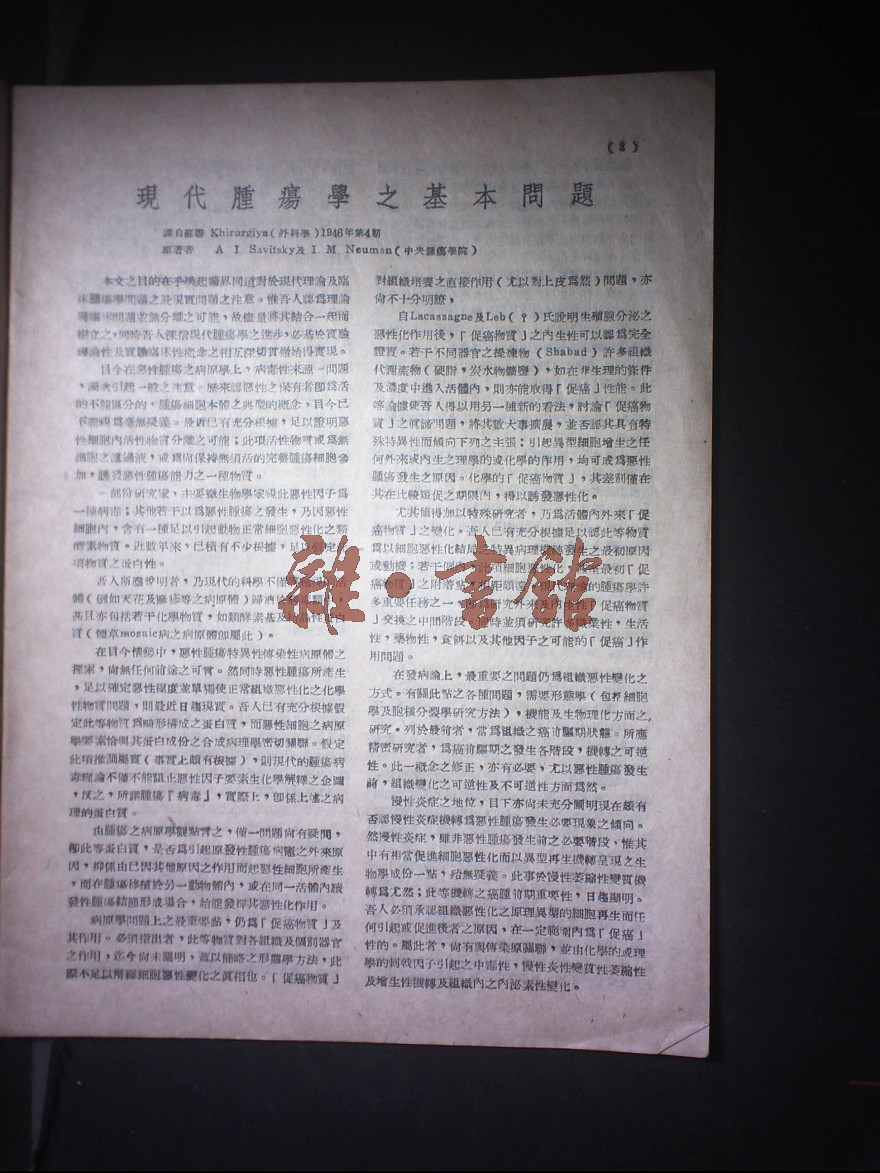 (3)
現代腫瘍學之基本問題
譯自蘇聯 Khirurgiya(外科學)1946年第4期
原著者 A I. Savitsky及 I. M. Neuman(中央腫瘍學院)
本文之目的在乎喚起醫界同道對於現代理論及臨
床腫瘍學問題之及現實問題之注意。惟吾人認爲理論
與臨床問題並無分離之可能,故儘量將其結合一起而
樹立之,同時吾人深信現代腫瘍學之進步,必基於實驗
理論性及實驗臨床性概念之相互深切貫徹始得實現。
目今在惡性腫瘍之病原學上,病毒性來源一問題
,漸次引起一般之注意。歷來認惡性之保有者卽爲活
的不能區分的,腫瘍細胞本體之典型的概念,目今已
不能視爲毫無疑義。最近已有充分根據,足以證明惡
性細胞內活性物質分離之可能;此項活性物質或爲無
細胞之濾過液,或爲向保持無須活的完整腫瘍細胞參
加,誘發惡性腫瘍能力之一種物質。
一部份研究家,主要微生物學家視此惡性因子爲
一種病毒;其他若干以爲惡性腫瘍之發生,乃因惡性
細胞內,含有一種足以引起動物正常細胞惡性化之類
酵素物質。近數年來,已積有不少根據,足以假定
項物質之蛋白性。
吾人所應說明者,乃現代的科學不僅
體(例如天花及麻疹等之病原體)歸
甚且亦包括若干化學物質,如類酵素基及
質(煙草mosaic病之病原體卽屬此)。
在目今情勢中,惡性腫瘍特異性傳染性病原體之
探索,尙無任何前途之可言。然同時惡性腫瘍所產生
,足以確定惡性程度並單獨使正常組織惡性化之化學
性物質問題,則最近日趨現實。吾人已有充分根據假
定此等物質爲畸形構成之蛋白質,而惡性細胞之病原
學要素恰與其蛋白成份之合成病理學密切關聯。假定
此項推測屬實(事實上頗有根據),則現代的腫瘍病
毒理論不僅不能阻止惡性因子要素生化學解釋之企圖
,反之,所謂腫瘍『病毒』,實際上,卽係上述之病
理的蛋白質。
由腫瘍之病原學觀點言之,僅一問題尙有疑問,
卽此等蛋白質,是否爲引起原發性腫瘍病竈之外來原
因,抑係由已因其他原因之作用而起惡性細胞所產生
,而在腫瘍移植於另一動物體內,或在同一活體內續
發性腫瘍結節形成場合,始能發揮其惡性化作用。
病原學問題上之最重要點,仍爲「促癌物質」及
其作用。必須指出者,此等物質對各組織及個別器官
之作用,迄今尙未闡明,蓋以簡略之形態學方法,此
際不足以解釋細胞惡性變化之眞相也。「促癌物質」
對組織培養之直接作用(尤以對上皮爲然)問題,亦
尙不十分明瞭,
自Lacassagne及Leb(?)氏說明生殖腺分泌之
惡性化作用後,「促癌物質」之內生性可以認爲完全
證實。若干不同器官之提煉物(Shabad)許多組織
代謝產物(硬脂,炭水物鹽),如在非生理的條件
及濃度中進入活體內,則亦能取得「促癌」性能。此
等論據使吾人得以用另一種新的看法,討論「促癌物
質」之眞諦問題,將其數大事擴展,並否認其具有特
殊特異性而傾向下列之主張:引起異型細胞增生之任
何外來或內生之理學的或化學的作用,均可成爲惡性
腫瘍發生之原因。化學的「促癌物質」,其差別僅在
其在比較短促之期限內,得以誘發惡性化。
尤其值得加以特殊研究者,乃爲活體內外來「促
癌物質」之變化。吾人已有充分根據足以認此等物質
爲以細胞惡性化結局之特異病理發生之最初原因
或動機;若干個此項細胞惡性化,至最初「促
癌物質」之附着點,相距頗遠。現代理論的腫瘍學許
多重要任務之一,卽爲研究外來及內生性「促癌物質
」交換之中間階段,同時並須研究許多職業性,生活
性,藥物性,食餌以及其他因子之可能的「促癌」作
用問題。
在發病論上,最重要之問題仍爲組織惡性變化之
方式。有關此點之各種問題,需要形態學(包括細胞
學及胞核分裂學研究方法),機能及生物理化方面之
研究。列於最前者,當爲組織之癌前驅期狀態。所應
精密研究者,爲癌前驅期之發生各階段,機轉之可逆
性。此一概念之修正,亦有必要,尤以惡性腫瘍發生
前,組織變化之可逆性及不可逆性方面爲然。
慢性炎症之地位,目下亦尙未充分闡明現在頗有
否認慢性炎症機轉爲惡性腫瘍發生必要現象之傾向。
然慢性炎症,雖非惡性腫瘍發生前之必要階段,惟其
中有相當促進細胞惡性化而以異型再生機轉呈現之生
物學成份一點,殆無疑義。此事於慢性萎縮性變質機
轉爲尤然;此等機轉之癌腫前期重要性,日趨顯明。
吾人必須承認組織惡性化之原理異型的細胞再生而任
何引起或促進後者之原因,在一定範圍內爲「促癌」
性的。屬此者,尙有與傳染原關聯,並由化學的或理
學的刺戟因子引起之中毒性,慢性炎性變質性萎縮性
及增生性機轉及組織內之內泌素性變化。
雜·書館